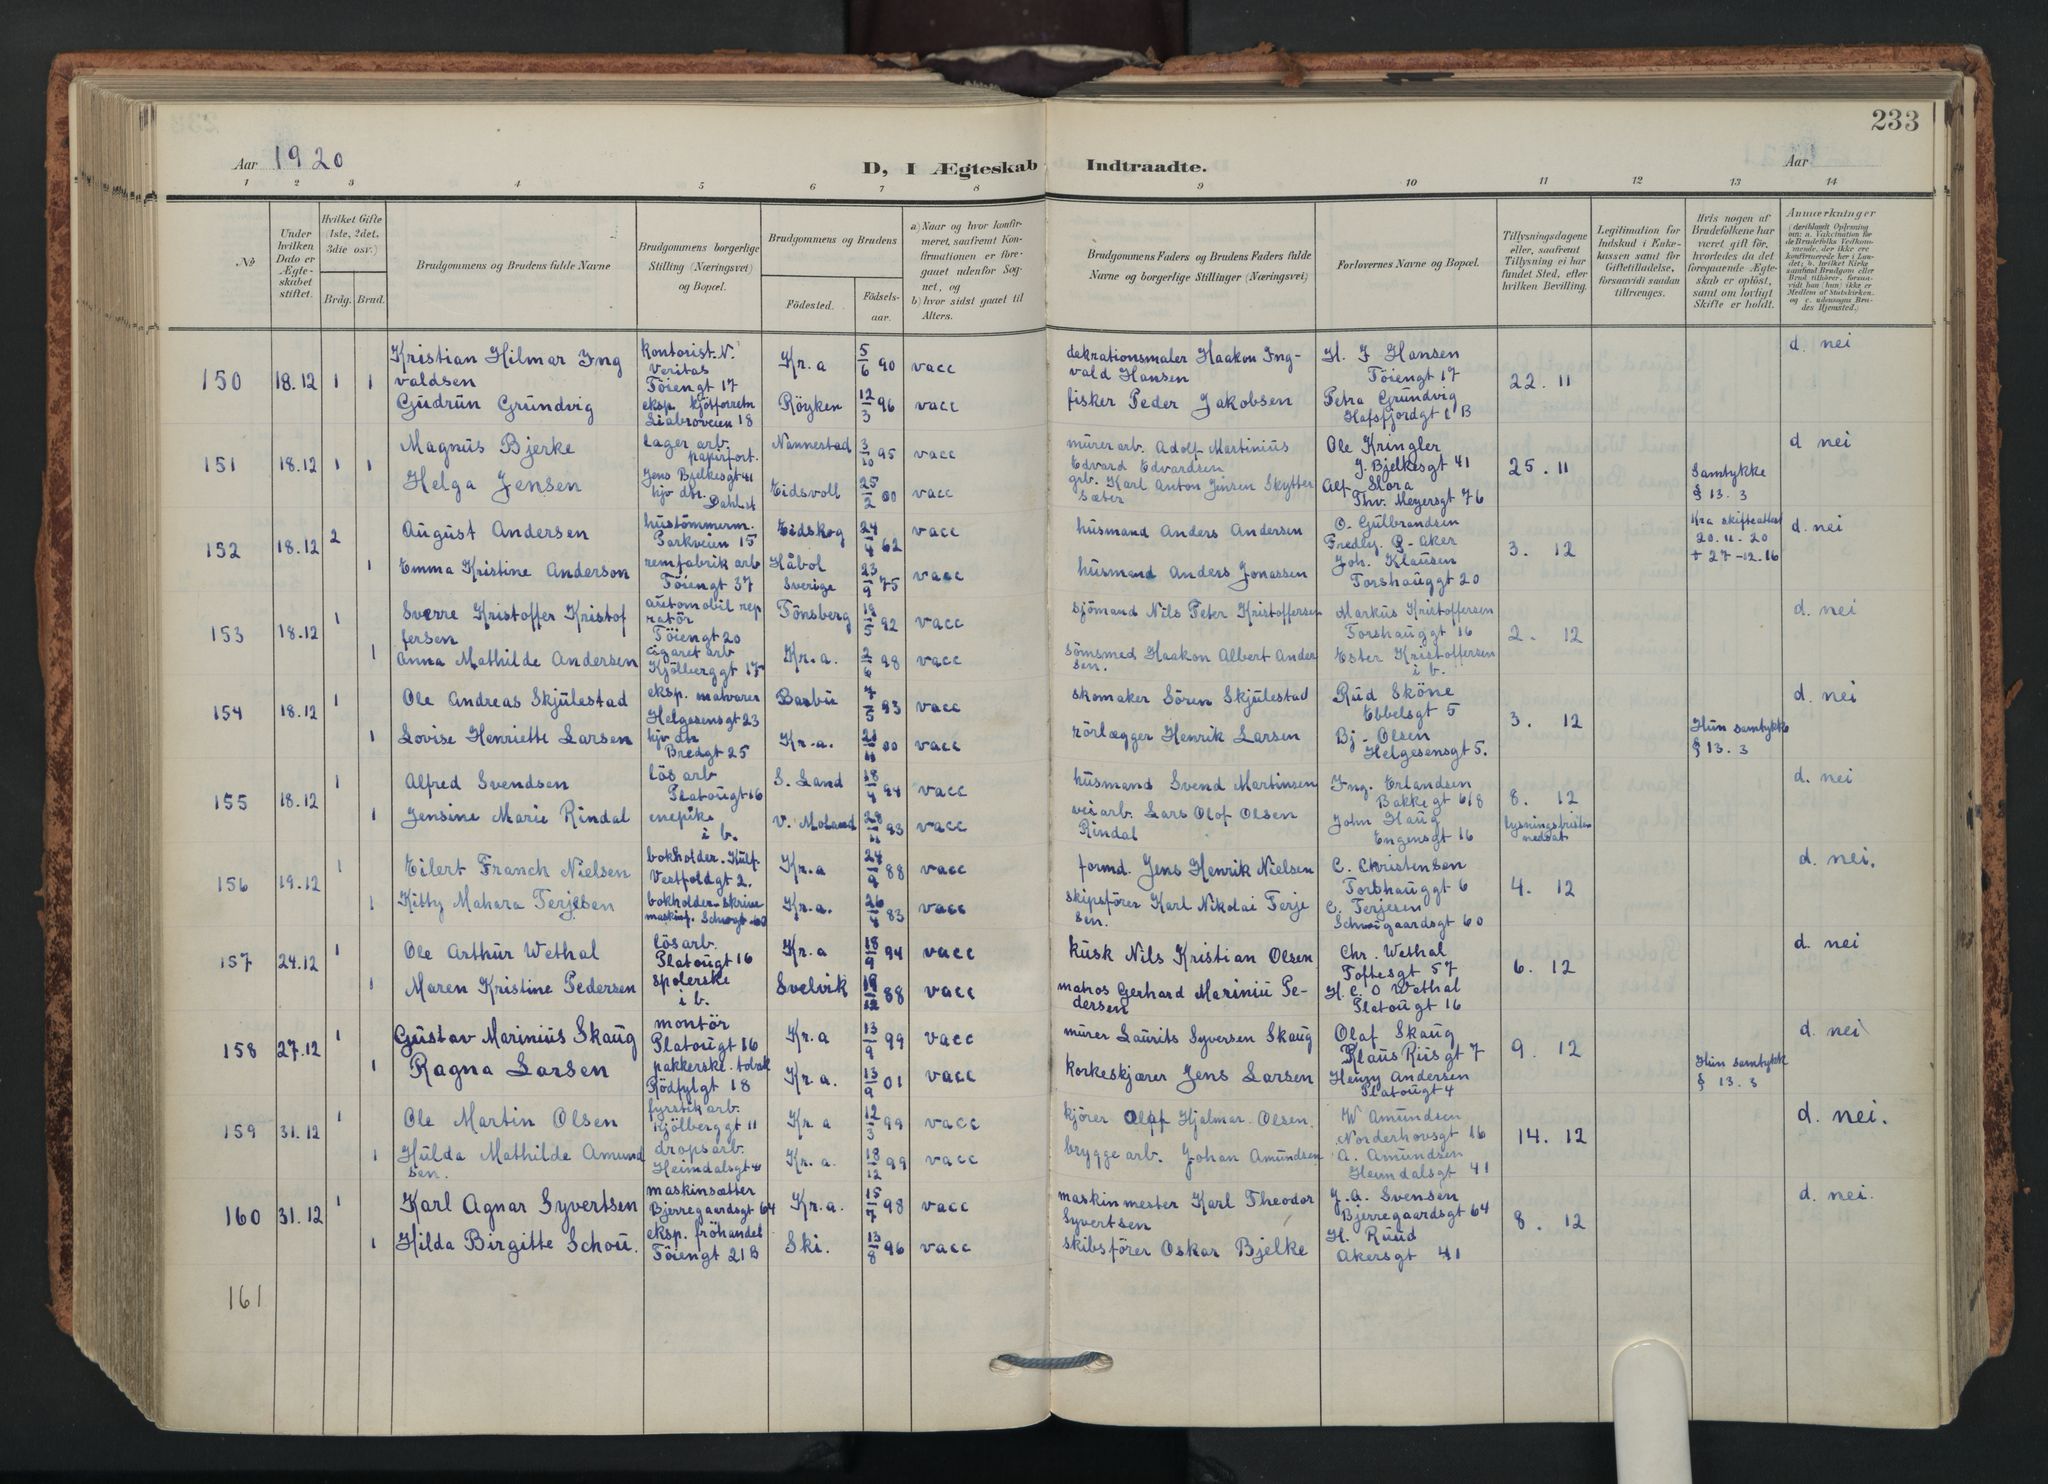 233
Aar 1920
D, I Ægteskab Indtraadte.
Aar
1 2 3 4 5 6 7 8 9 10 11 12 13 14
No
Under hvilken Dato er Ægteskabet stiftet.
Hvilket Gifte (1ste, 2det, 3die osv.)
Brdg. Brud.
Brudgommens og Brudens fulde Navne
Brudgommens borgerlige Stilling (Næringsvei) og Bopæl.
Brudgommens og Brudens
Födested.
Födselsaar.
a) Naar og hvor konfirmeret, saafremt Konfirmationen er foregaaet udenfor Sognet, og
b) hvor sidst gaaet til Alters.
Brudgommens Faders og Brudens Faders fulde Navne og borgerlige Stillinger (Næringsvei)
Forlovernes Navne og Bopæl.
Tillysningsdagene eller, saafremt Tillysning ei har fundet Sted, efter hvilken Bevilling.
Legitimation for Indskud i Enkekassen samt for Giftetilladelse, forsaavidt saadan tiltrænges.
Hvis nogen af Brudefolkene har været gift för, hvorledes da det foregaaende Ægteskab er oplöst, samt om lovligt Skifte er holdt.
Anmærkninger
150 18.12 1 1
Kristian Hilmar Ing
valdsen
kontorist. N.
Veritas
Töiengt 17
Kr.a 5/6 90 vacc
dekrationsmaler Haakon Ing-
vald Hansen
H. J Hansen
Töiengt 17
22. 11
d. nei
Gudrun Grundvig
eksp. kjötforretn
Liabroveien 18
Röyken 12/3 96 vacc
fisker Peder Jakobsen
Petra Grundvig
Hafsfjordgt B
151 18.12 1 1
Magnus Bjerke
lager arb.
papirfort.
Jens Bjelkesgt 41
Nannestad 3/10 95 vacc
murer arb. Adolf Martinius
Edvard Edvardsen
Ole Kringler
J. Bjelkesgt 41
25. 11
d nei
Helga Jensen
hjv dtr.
Eidsvoll 25/2 00 vacc
grb. Karl Anton Jensen Skytter
sæter
Alf Slora
Thv. Meyersgt 76
Samtykke
§ 13. 3
152 18.12 2
August Andersen
hustömmerm.
Parkveien 15
Eidskog 24/4 62 vacc
husmand Anders Andersen
O. Gulbrandsen
Fredly. Ø- Aker
3. 12
Kra skifteattest
20. 11 - 20
+ 27 - 12. 16
d. nei
1
Emma Kristine Anderson
remfabrik arb
Töiengt 37
Håbol
Sverige
23/9 75 vacc
husmand Anders Jonassen
Joh. Klausen
Torshauggt 20
153 18.12 1
Sverre Kristoffer Kristof
fersen
automobil rep
ratör
Töiengt 20
Tönsberg 18/5 92 vacc
sjömand Nils Peter Kristoffersen
Markus Kristoffersen
Torshauggt 16
2. 12
d. nei
1
Anna Mathilde Andersen
cigaret arb
Kjölberggt 17
Kr.a. 2/6 98 vacc
sömsmed Haakon Albert Ander
sen.
Ester Kristoffersen
i b.
154 18.12 1
Ole Andreas Skjulestad
eksp. matvarer
Helgesensgt 23
Barbu 7/5 93 vacc
skomaker Sören Skjulestad
Rud Sköne
Ebbelsgt 5
3. 12
d. nei
1
Lovise Henriette Larsen
hjv dtr
Bredgt 25
Kr.a. 00 vacc
rörlægger Henrik Larsen
Bj- Olsen
Helgesensgt 5.
Hun samtykke
§ 13. 3
155 18.12 1
Alfred Svendsen
lös arb
Platougt 16
S. Land 18/4 94 vacc
husmand Svend Martinsen
Ing. Erlandsen
Bakkegt 6/8
8. 12
d. nei
1
Jensine Marie Rindal
enepike
i b.
V. Moland 93 vacc
veiarb. Lars Olof Olsen
Rindal
John Haug
Engensgt 16
lysningsfristen
nedsat
156 19.12 1
Eilert Franch Nielsen
bokholder. Kulf
Vestfoldgt 2.
Kr.a 24/9 88 vacc
formd. Jens Henrik Nielsen
C. Christensen
Torshauggt 6
4. 12
d. nei.
1
Kitty Mahara Terjesen
bokholder. skrive
maskinf. Schwgt 60
Kr.a. 26/4 83 vacc
skipsförer Karl Nikolai Terje
sen.
C. Terjesen
Schweigaardsgt 60
157 24.12 1
Ole Arthur Wethal
lös arb.
Platougt 16
Kr.a 18/9 94 vacc
kusk Nils Kristian Olsen
Chr. Wethal
Toftesgt 57
6. 12
d. nei
1
Maren Kristine Pedersen
spolerske
i b.
Svelvik 19/12 88 vacc
matros Gerhard Mariniu Pe-
dersen
H. C. O Wethal
Platougt 16
158 27.12 1
Gustav Marinius Skaug
montör
Platougt 16
Kr.a 13/9 99 vacc
murer Laurits Syversen Skaug
Olaf Skaug
Klaus Riisgt 7
9. 12
d. nei
1
Ragna Larsen
pakkerske. tobak
Rödfylgt 18
Kr.a. 13/9 01 vacc
korkeskjærer Jens Larsen
Henry Andersen
Platougt 4
Hun samtykk
§ 13. 3
159 31.12 1
Ole Martin Olsen
fyrstik arb.
Kjölberggt 11
Kr.a 12/3 99 vacc
kjörer Olaf Hjalmar Olsen.
W Amundsen
Norderhovsgt 16
14. 12
d. nei.
1
Hulda Mathilde Amund
sen.
dropsarb.
Heimdalsgt 4
Kr.a. 18/12 99 vacc
brygge arb. Johan Amundsen
A. Amundsen
Heimdalsgt 41
160 31.12 1
Karl Agnar Syvertsen
maskinsætter
Bjerregaardsgt 64
Kr.a. 15/7 98 vacc
maskinmester Karl Theodor
Syvertsen
J. A. Svensen
Bjerregaardsgt 64
8. 12
d. nei.
1
Hilda Birgitte Schou.
eksp. fröhandel
Töiengt 21B
Ski. 13/8 96 vacc
skibsförer Oskar Bjelke
H. Ruud
Akersgt 41
161